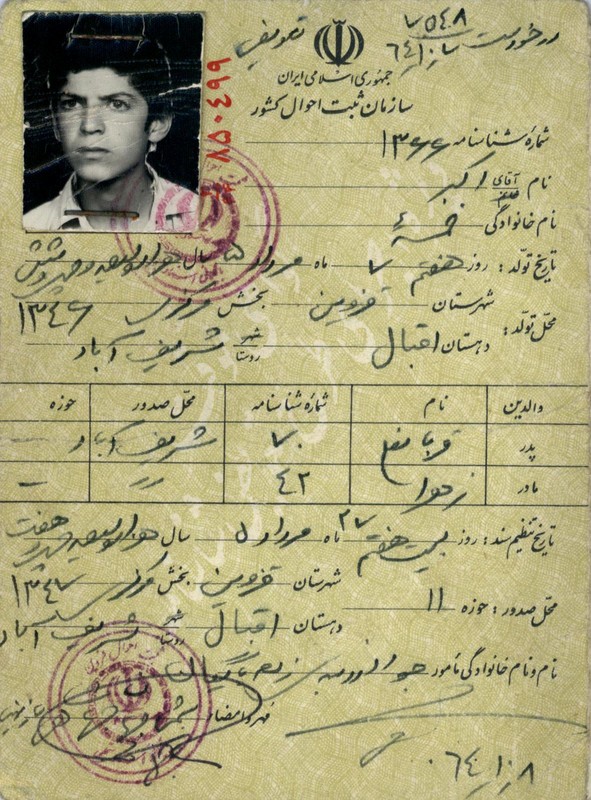 درخواست ۷۵۴۸
۶۴٫۱۰٫۷
تعویض
جمهوری اسلامی ایران
سازمان ثبت احوال کشور
۸۵۰۴۹۹
شمارهٔ شناسنامه ۱۳۶۶
نام آقای خانم اکبر
نام خانوادگی خمسه ئی
تاریخ تولد: روز هفتم ۷ ماه مرداد ۵ سال هزار و سیصد و چهل و شش
۱۳۴۶
محل تولد: شهرستان قزوین بخش مرکزی
دهستان اقبال شهر روستا شریف آباد
والدین نام شمارهٔ شناسنامه محل صدور حوزه
پدر ۷۰ شریف آباد
مادر زهرا ۴۲ 〃 —
تاریخ تنظیم سند: روز بیست هفتم ۲۷ ماه مرداد ۵ سال هزار و سیصد چهل و هفت
۱۳۴۷
محل صدور: حوزه ۱۱ شهرستان قزوین بخش مرکزی
دهستان اقبال شهر روستا شریف آباد
نام و نام خانوادگی مأمور
مهر و امضاء
۶۴٫۱۰٫۸